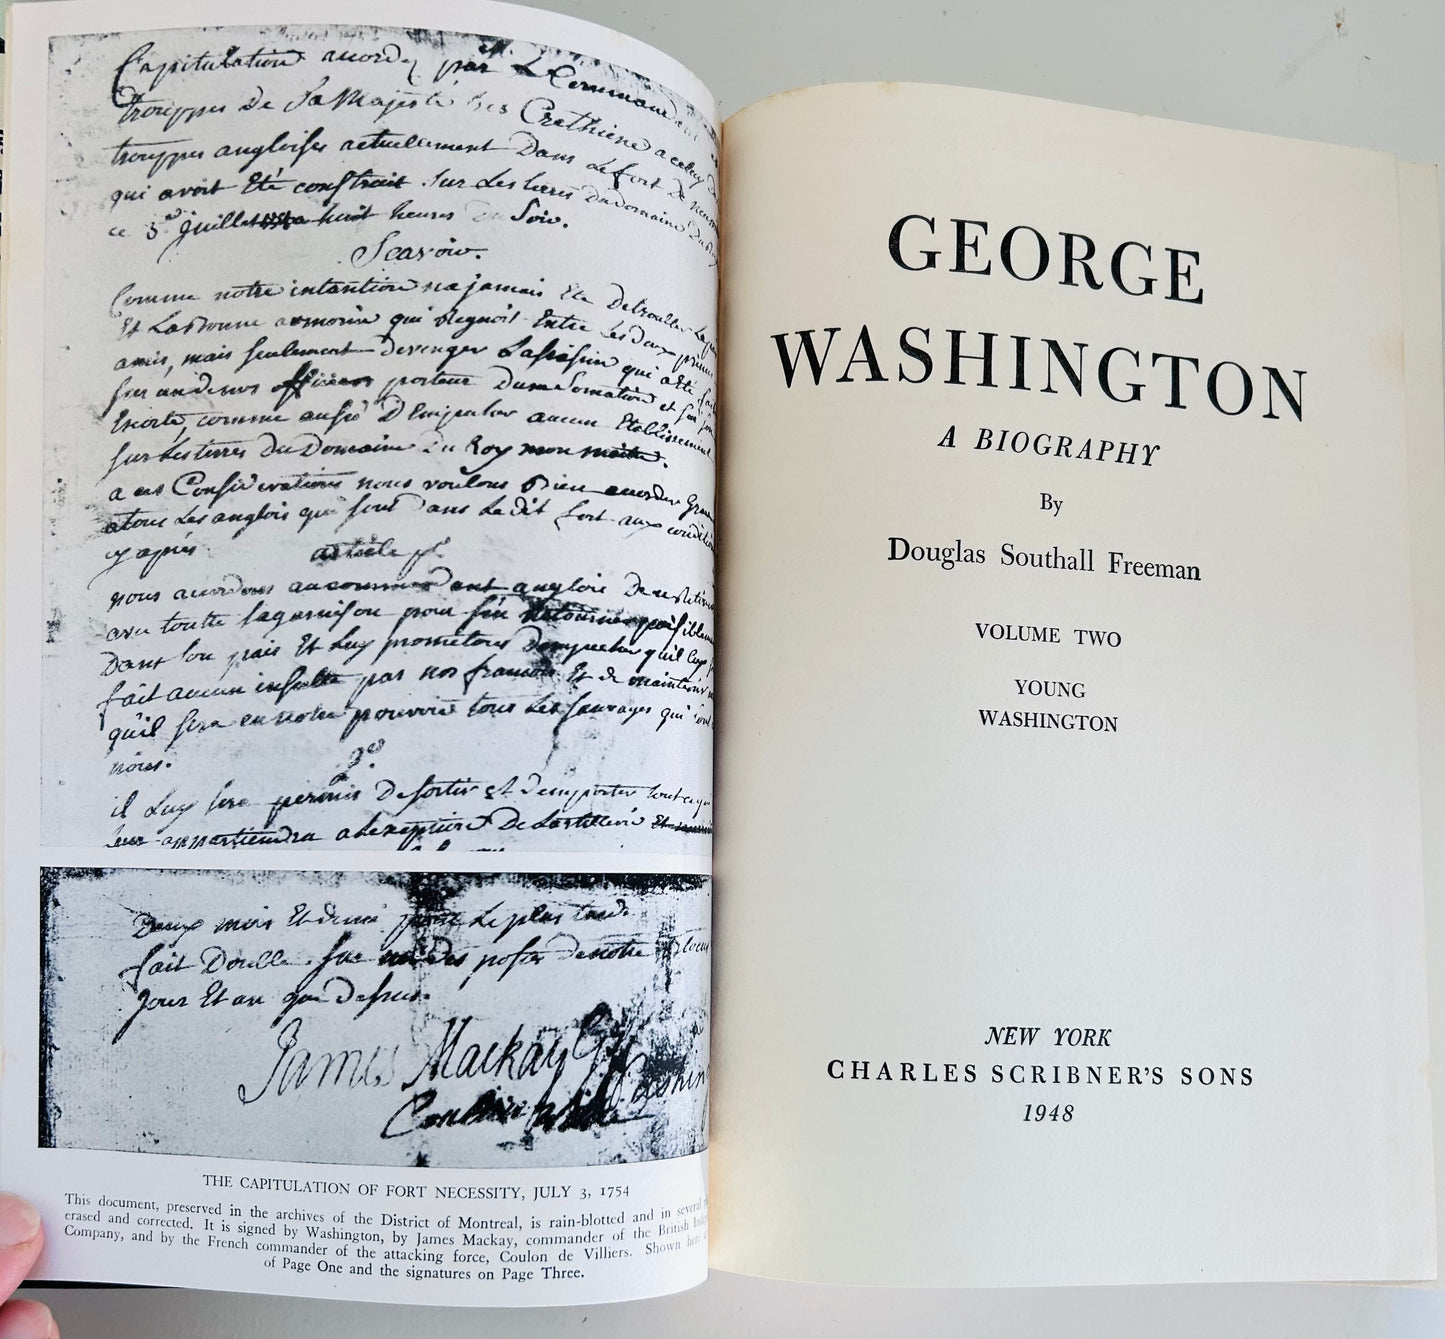 Capitulation accordez par Le Command
trouppes De Sa Majesté tres Crethiene a celuy De
trouppes angloises actuellement Dans Le fort De
qui avoit Eté construit Sur Les terres Du Domaine Du Roy
ce 3 Juillet a huit heures Du Soir.
Scavoir.
Comme notre intention n'a jamais Eté De troubler La
Et La bonne armonie qui Regnoit Entre Les Deux princes
amis, mais seulement De venger Lassasin qui a Eté fait
sur un de nos officiers porteur D'une Somation et
Escorte, comme aussi D'Empecher aucun Etablissement
sur Les terres Du Domaine Du Roy mon maitre.
a ces Considerations nous voulons Bien accorder
a tous Les anglois qui sont Dans Le dit fort aux condition
cy apres article
nous accordons au commandant anglois De
avec toutte sa garnison pour s'en retourner paisiblement
Dans son pais Et Luy prometons D'empecher qu'il Luy
fait aucun insulte par nos francois Et de maintenir
qu'il sera en notre pouvoir tous Les Sauvages qui
nous.
il Luy sera permis De sortir et D'emporter tout ce qui
leur appartiendra a L'exeption De Lartillerie
Deux mois Et demi pour Le plus tard.
fait Double Sur De notre
jour Et an que Dessus.
James Mackay
Coulon Villier
THE CAPITULATION OF FORT NECESSITY, JULY 3, 1754
This document, preserved in the archives of the District of Montreal, is rain-blotted and in several
erased and corrected. It is signed by Washington, by James Mackay, commander of the British
Company, and by the French commander of the attacking force, Coulon de Villiers. Shown here
of Page One and the signatures on Page Three.
GEORGE
WASHINGTON
A BIOGRAPHY
By
Douglas Southall Freeman
VOLUME TWO
YOUNG
WASHINGTON
NEW YORK
CHARLES SCRIBNER'S SONS
1948